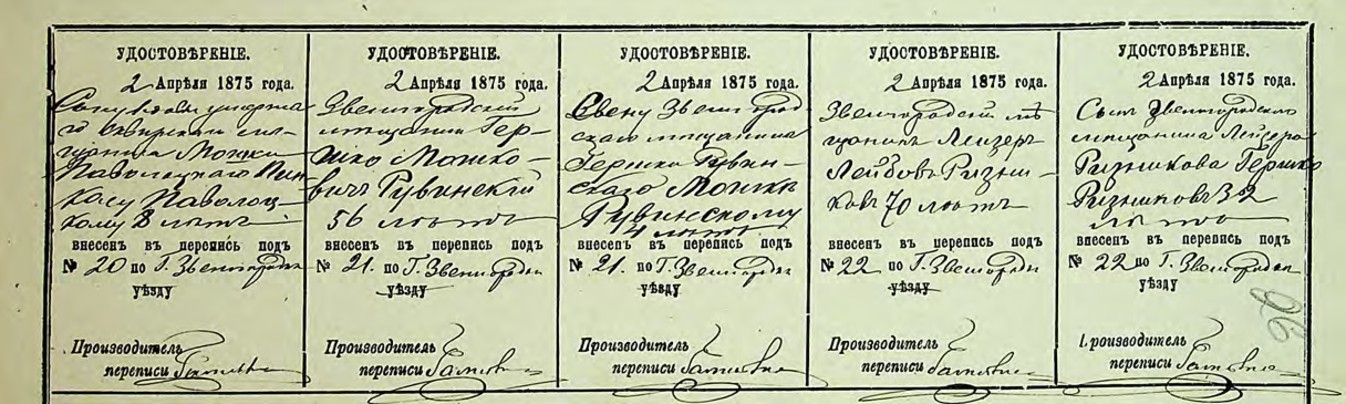 УДОСТОВѢРЕНІЕ.
2 Апрѣля 1875 года.
Сыну
Мошки
Паволоцкаго Пин-
касу Паволоц-
кому 8 лѣтъ
внесенъ въ перепись подъ
№ 20 по Г. Звенигородки
уѣзду
Производитель
переписи
УДОСТОВѢРЕНІЕ.
2 Апрѣля 1875 года.
Звенигородскій
мѣщанинъ Гер-
шко Мошко-
вичъ Рувинскій
56 лѣтъ
внесенъ въ перепись подъ
№ 21. по Г. Звенигородки
уѣзду
Производитель
переписи
УДОСТОВѢРЕНІЕ.
2 Апрѣля 1875 года.
Звенигород
скаго мѣщанина
Гершки Рувин-
скаго Мошкѣ
Рувинскому
4 лѣтъ
внесенъ въ перепись подъ
№ 21. по Г. Звенигородки
уѣзду
Производитель
переписи
УДОСТОВѢРЕНІЕ.
2 Апрѣля 1875 года.
Звенигородскій мѣ
щанинъ Лейзеръ
Лейбовъ Ризни-
ковъ 70 лѣтъ
внесенъ въ перепись подъ
№ 22 по Г. Звенигородки
уѣзду
Производитель
переписи
УДОСТОВѢРЕНІЕ.
2 Апрѣля 1875 года.
Сынъ Звенигородскаго
мѣщанина Лейзера
Ризникова Гершко
Ризниковъ 32
лѣтъ
внесенъ въ перепись подъ
№ 22 по Г. Звенигородки
уѣзду
Производитель
переписи